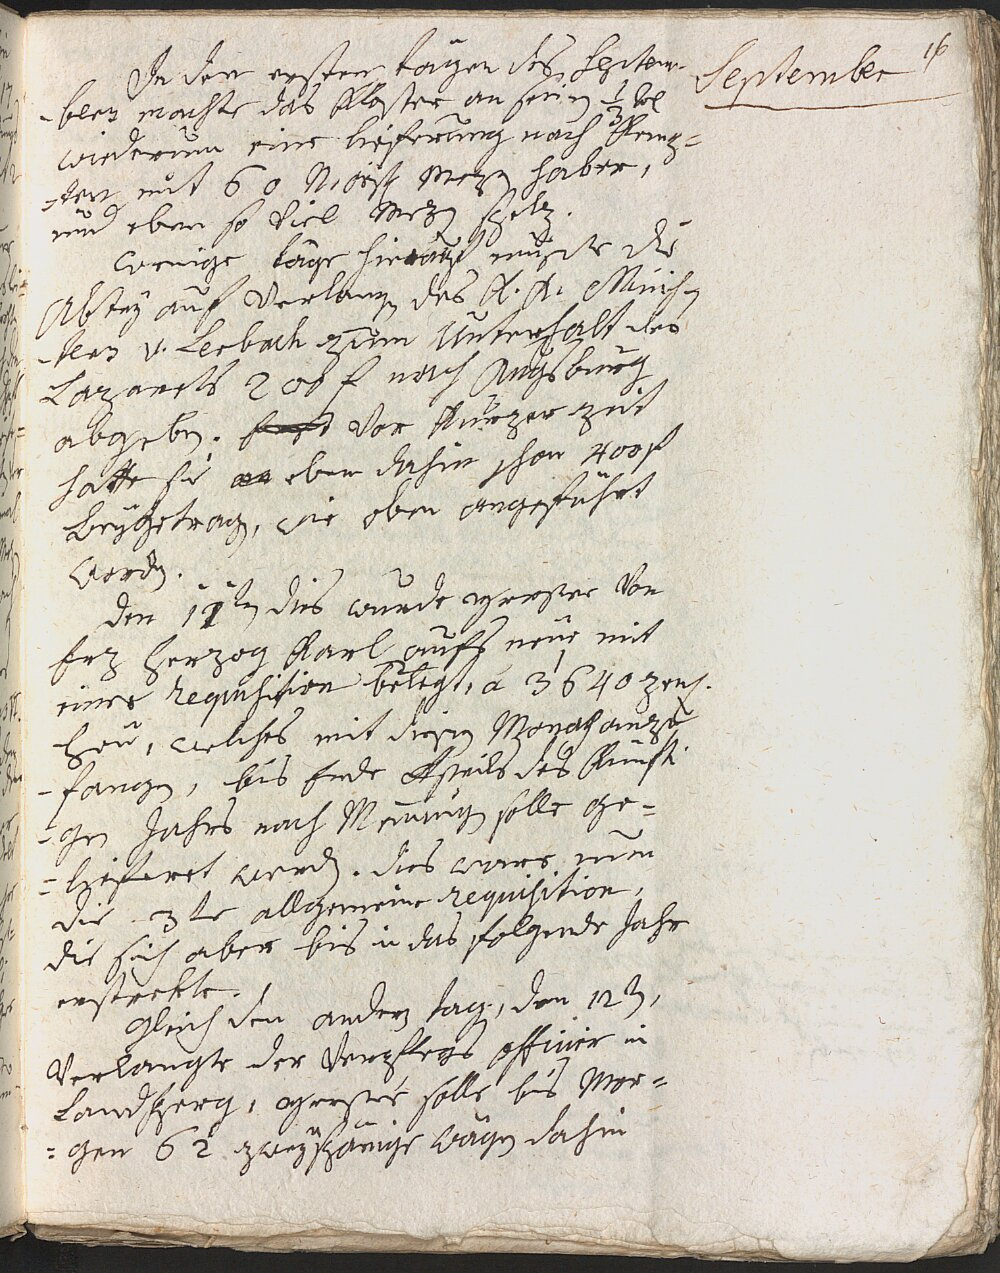 September 16
In den ersten tägen des Septem-
-bers machte das Kloster an seinen 1/3tel
wiederum eine lieferung nach Kemp=
=ten mit 60 Metzen haber,
und eben so viel Metzen
Wenige täge hierauf muste die
Abtey auf Verlangen des K. K. Minist
-ters v. Lerbach zum Unterhalt des
Lazareths 200 f nach Augsburg
abgeben. Vor kurzer zeit
hatte sie eben dahin schon 400 f
beygetragen, wie oben angeführt
worden.
den 11ten dies wurde von
Erz Herzog Karl aufs neüe mit
einer requisition belegt, à 3640 zent.
heü, welches mit diesen Monath anzu
-fangen, bis Ende Aprils des künfti
=gen Jahrs nach Memingen solle ge=
=liefert werden. dies ware nun
die 3te allgemeine requisition,
die sich aber bis in das folgende Jahr
erstrekte.
gleich den andern tag, den 12ten,
verlangte der Verpflegs officier in
Landsberg, solle bis Mor=
=gen 62 zweyspänige wägen dahin